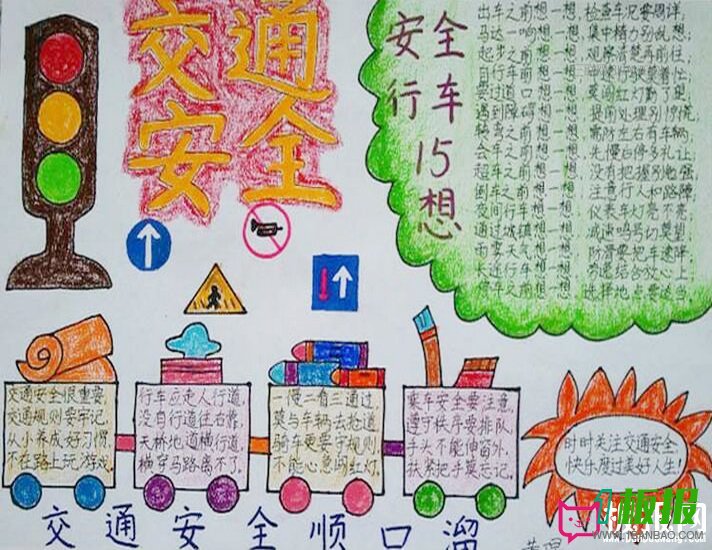 交通
安全
安全
行车
15
想
出车之前想一想，检查车况要周详；
马达一响想一想，集中精力别乱想；
起步之前想一想，观察清楚再前往；
自行车前想一想，中速行驶莫着忙；
要过道口想一想，莫闯红灯勤了望；
遇到障碍想一想，提前处理别惊慌；
转弯之前想一想，需防左右有车辆；
会车之前想一想，先慢后停多礼让；
超车之前想一想，没有把握别抢强；
倒车之前想一想，注意行人和路障；
夜间行车想一想，仪表车灯亮不亮；
通过城镇想一想，减速鸣号切莫望；
雨雾天气想一想，防滑要把车速降；
长途行车想一想，劳逸结合放心上；
停车之前想一想，选择地点要适当。
交通安全很重要，
交通规则要牢记，
从小养成好习惯，
不在路上玩游戏。
行车应走人行道，
没自行道往右靠，
天桥地道横行道，
横穿马路离不了。
一慢二看三通过，
莫与车辆去抢道，
骑车更要守规则，
不能心急闯红灯。
乘车安全要注意，
遵守秩序要排队，
手头不能伸窗外，
扶紧把手莫忘记。
时时关注交通安全，
快乐度过美好人生！
交通安全顺口溜
板报